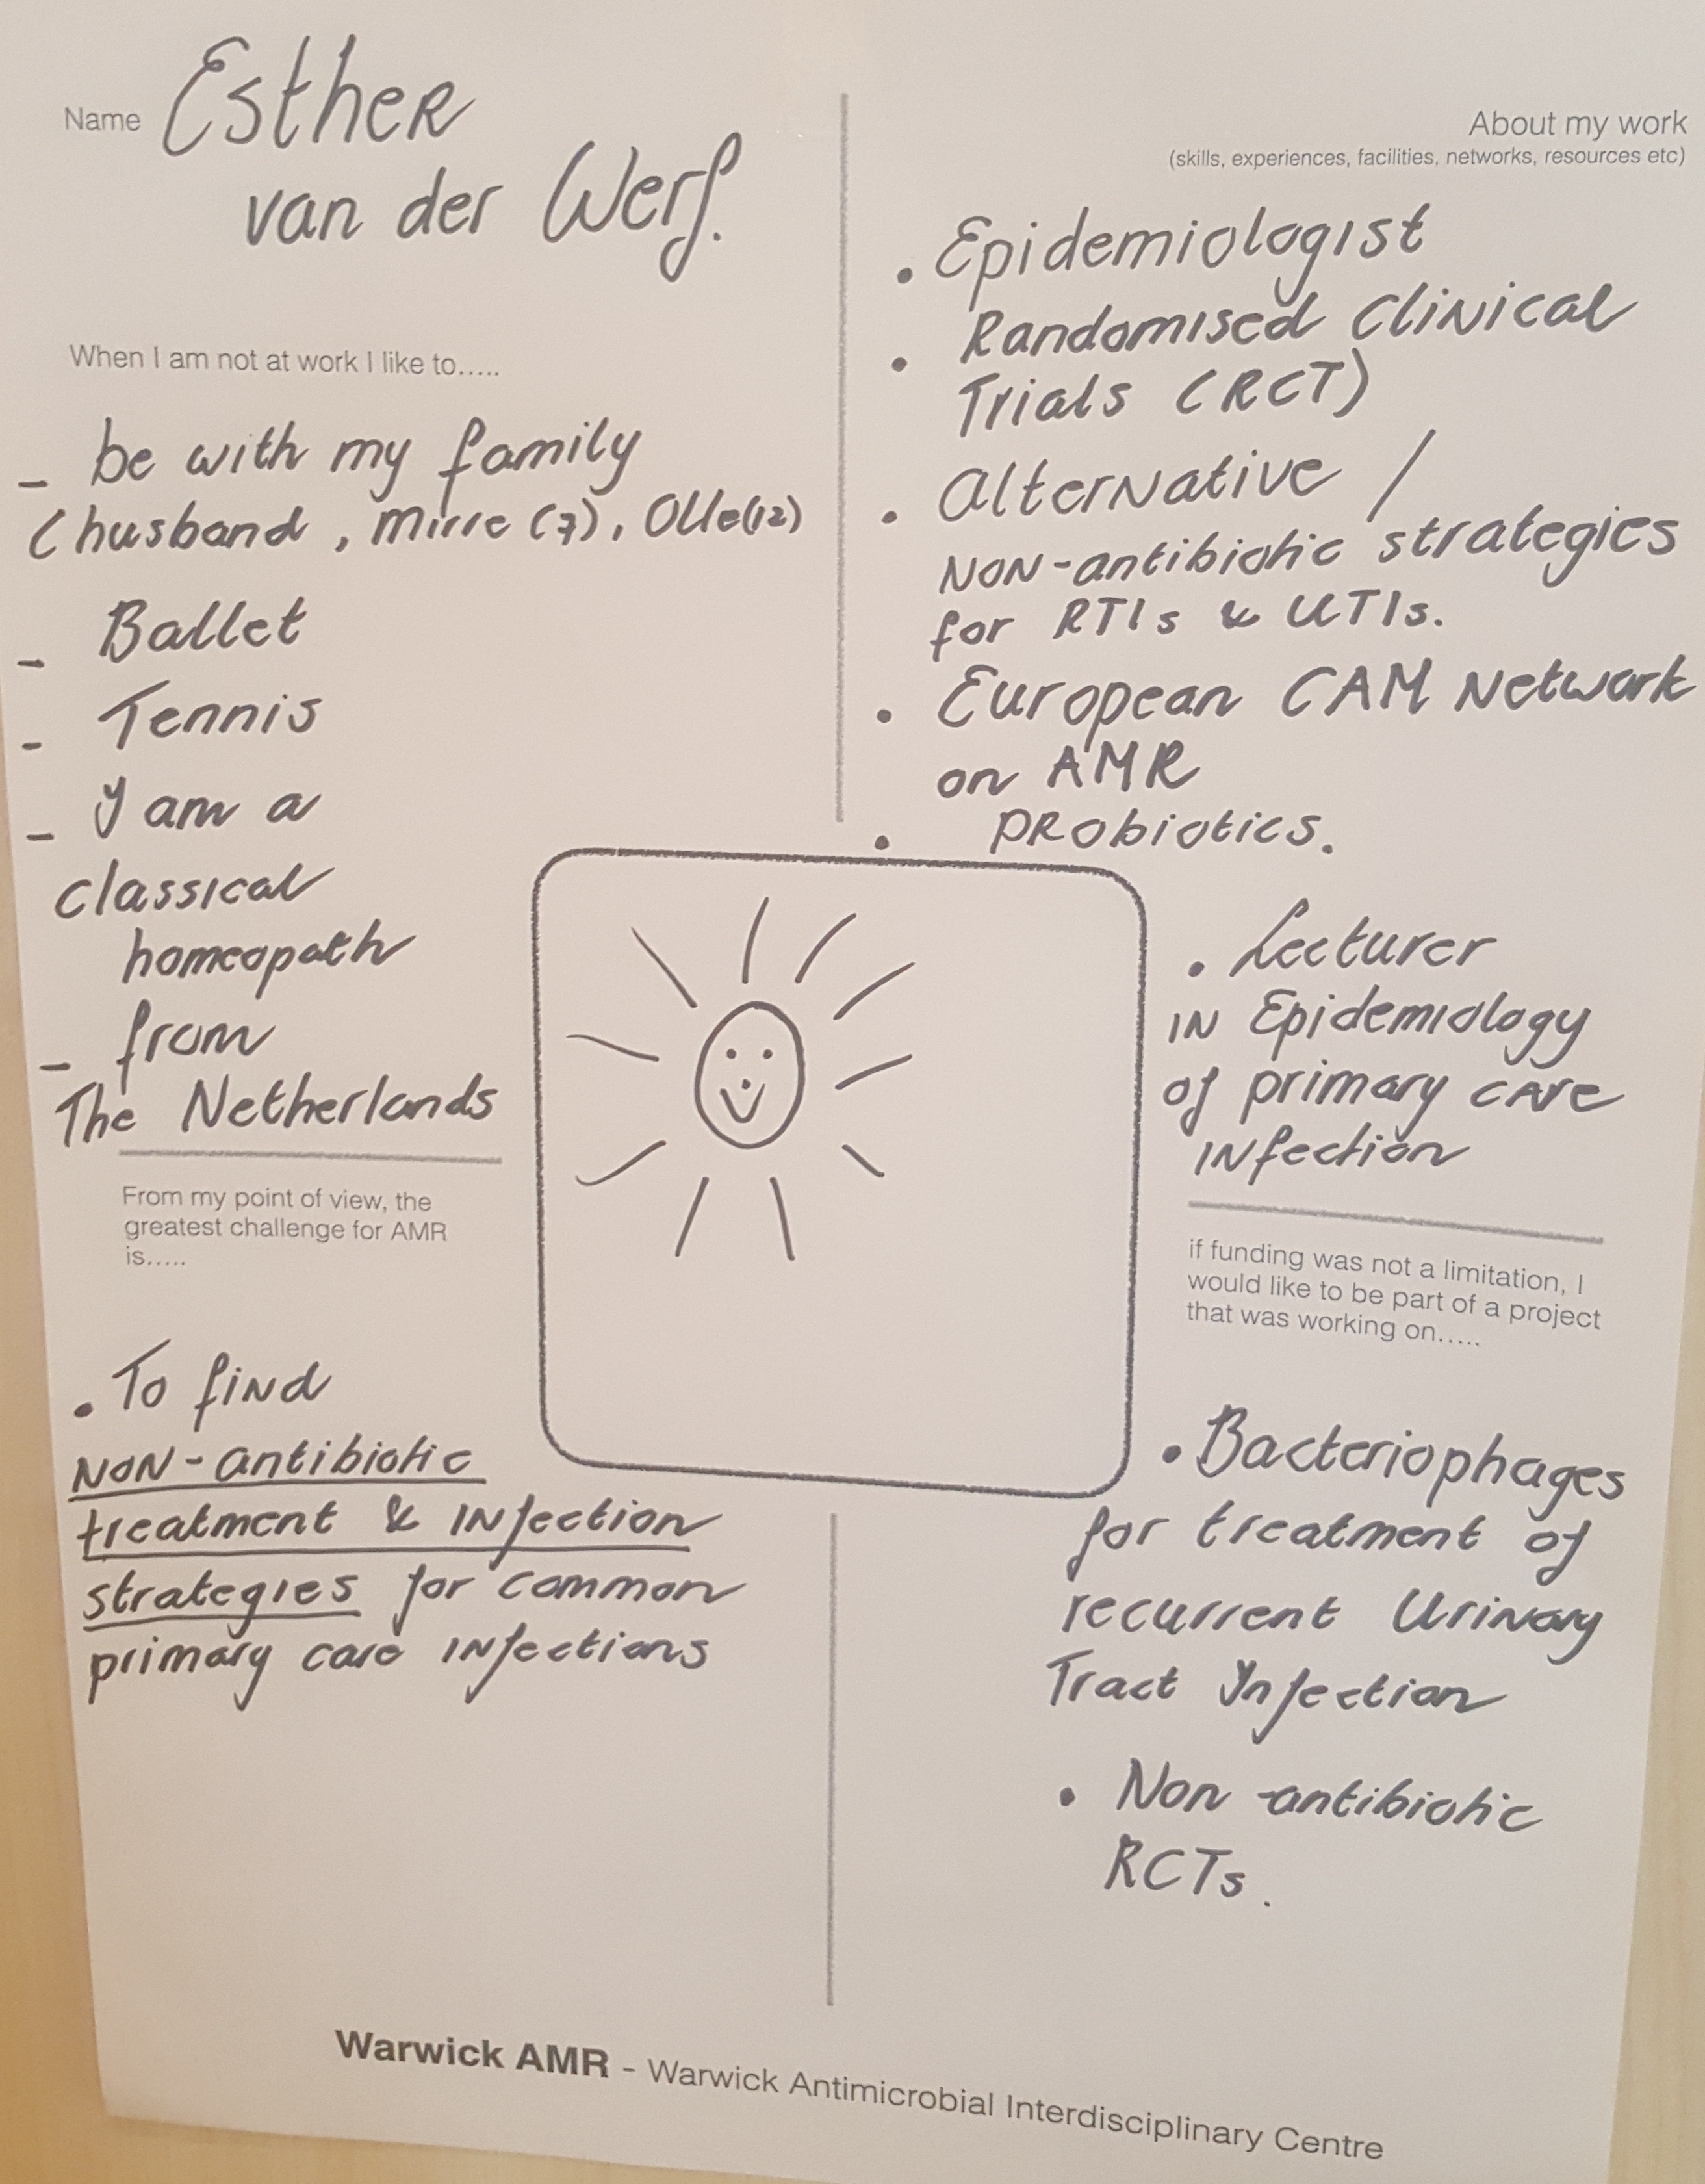 Name Esther
van der Werf.
When I am not at work I like to.....
- be with my family
(husband, Mirre (7), Olle(12)
- Ballet
- Tennis
- I am a
classical
homeopath
- from
The Netherlands
From my point of view, the
greatest challenge for AMR
is.....
• To find
NON-antibiotic
treatment & INfection
strategies for common
primary care INfections
About my work
(skills, experiences, facilities, networks, resources etc)
• Epidemiologist
• Randomised Clinical
Trials (RCT)
• Alternative /
NON-antibiotic strategies
for RTIs & UTIs.
• European CAM Network
on AMR
• PRobiotics.
• Lecturer
IN Epidemiology
of primary care
INfection
if funding was not a limitation, I
would like to be part of a project
that was working on.....
• Bacteriophages
for treatment of
recurrent Urinary
Tract Infection
• Non-antibiotic
RCTs.
Warwick AMR - Warwick Antimicrobial Interdisciplinary Centre